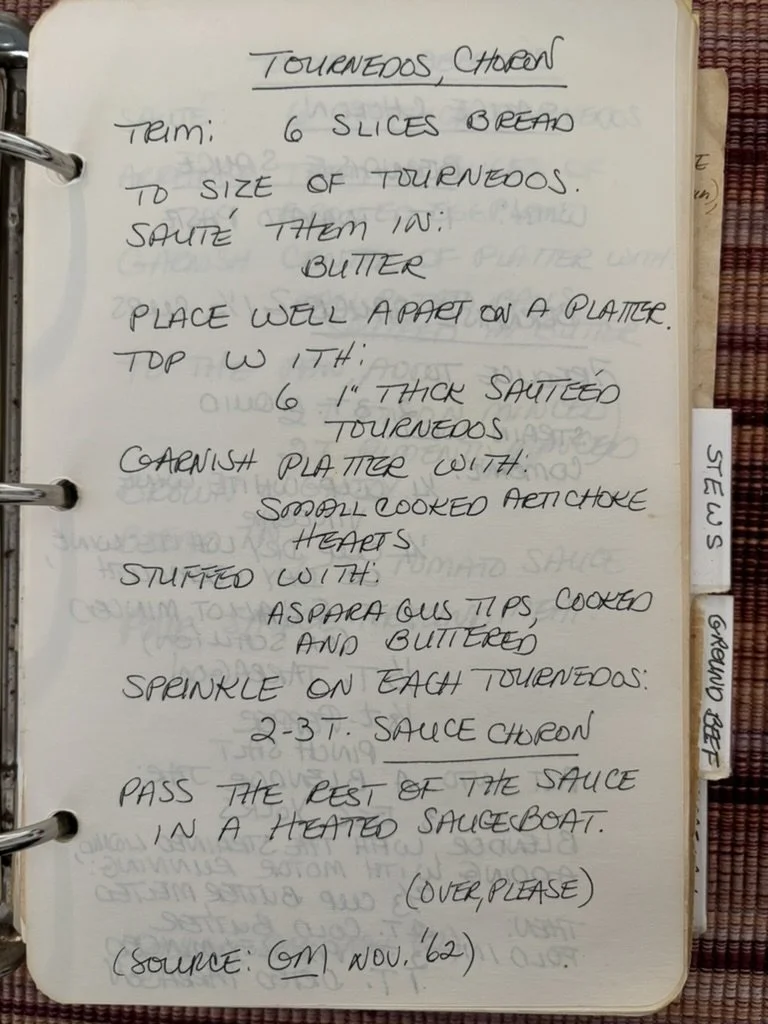 TOURNEDOS, CHORON
TRIM: 6 SLICES BREAD
TO SIZE OF TOURNEDOS.
SAUTÉ THEM IN:
BUTTER
PLACE WELL APART ON A PLATTER.
TOP WITH:
6 1" THICK SAUTÉED
TOURNEDOS
GARNISH PLATTER WITH:
SMALL COOKED ARTICHOKE
HEARTS
STUFFED WITH:
ASPARAGUS TIPS, COOKED
AND BUTTERED
SPRINKLE ON EACH TOURNEDOS:
2-3 T. SAUCE CHORON
PASS THE REST OF THE SAUCE
IN A HEATED SAUCEBOAT.
(OVER, PLEASE)
(SOURCE: GM NOV. '62)
STEWS
GROUND BEEF